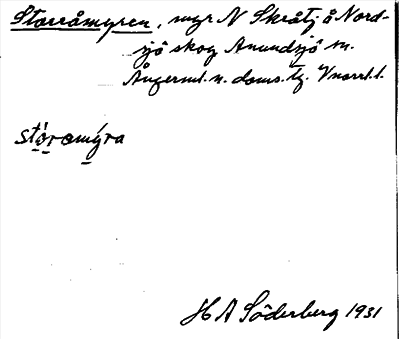 Storråmyren, myr N Skråtj å Nord-
sjö skog Anundsjö sn.
Ångerml. n. doms. tg. Vnorrl. l.
stóramýra
H A Söderberg 1931